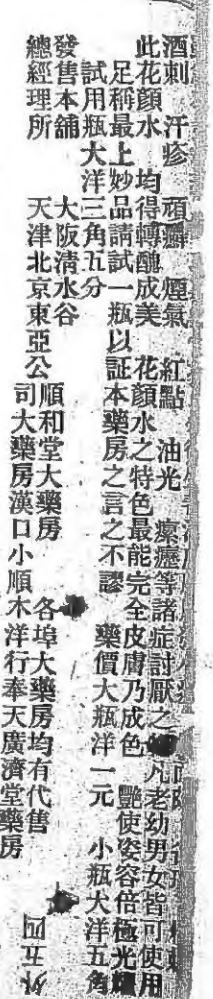 酒刺 汗疹 頑癬 煙氣 紅點 油光 瘰癧等諸症討厭之 凡老幼男女皆可使用
此花顏水 均得轉醜成美 花顏水之特色最能完全皮膚乃成色 艷使姿容倍極光
足稱最上妙品請試一瓶以証本藥房之言之不謬 藥價大瓶洋一元 小瓶大洋五角
試用瓶大洋三角五分
發售本舖 大阪清水谷 順和堂大藥房 各埠大藥房均有代售
總經理所 天津北京東亞公司大藥房漢口小順木洋行奉天廣濟堂藥房
外五四